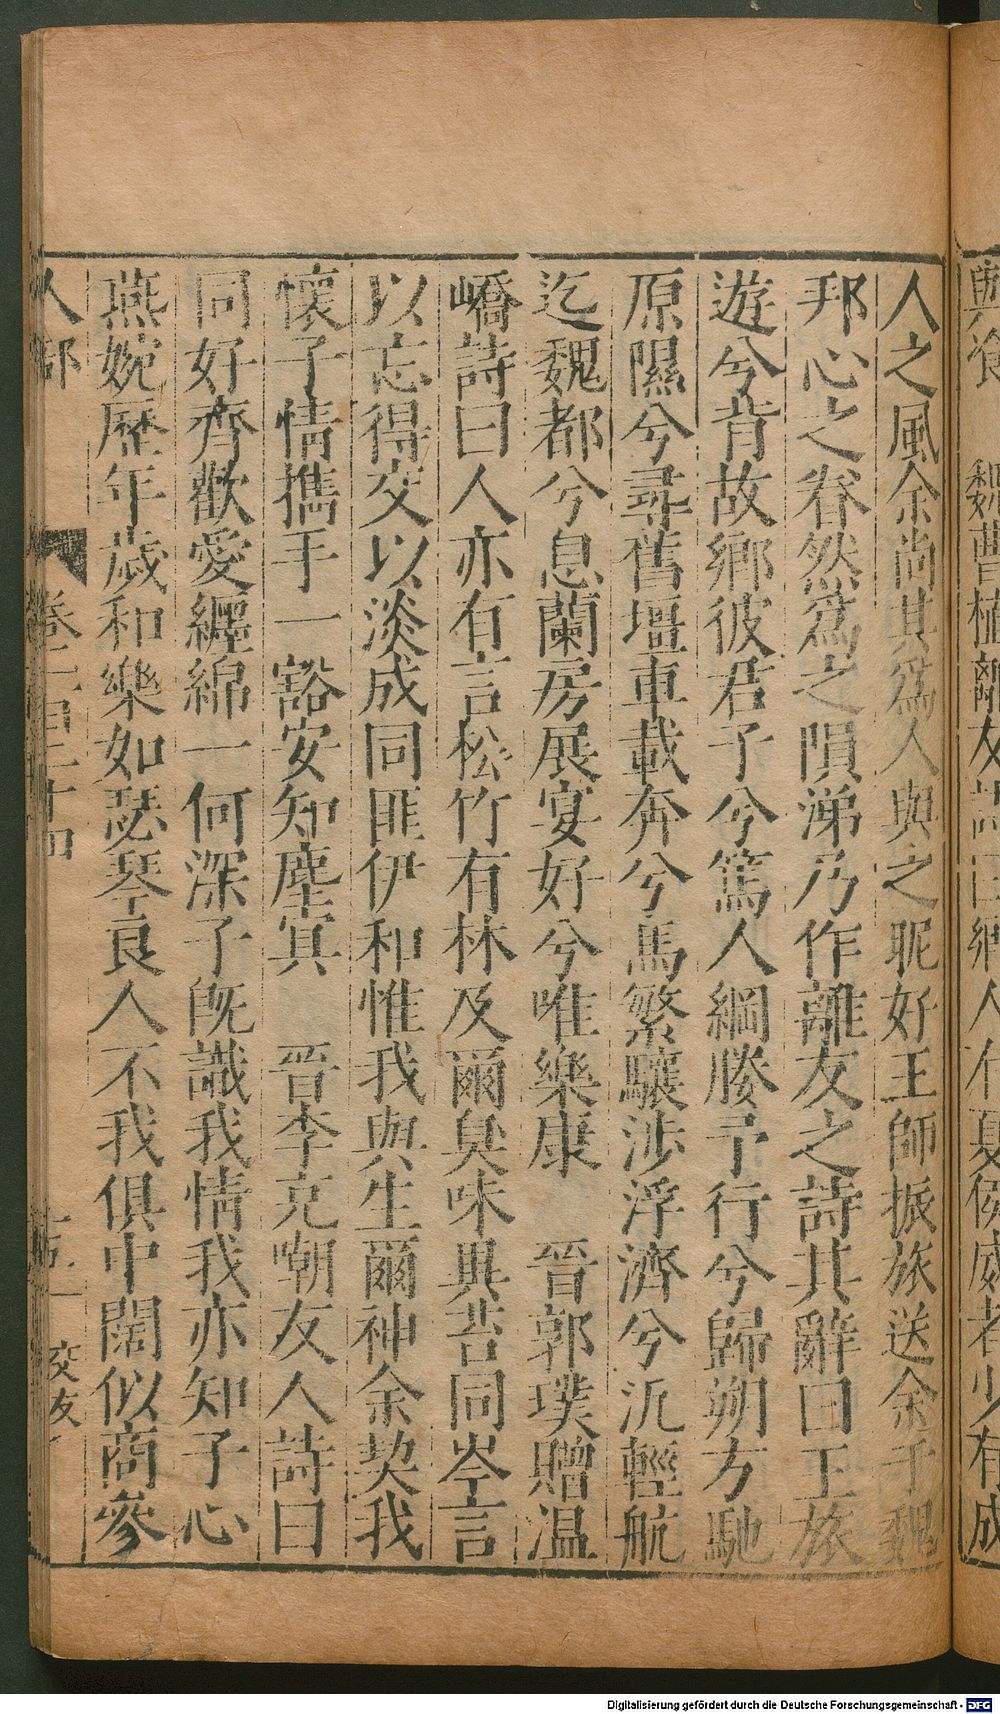 與飡　魏曹植離友詩曰鄉人有夏侯威者少有成
人之風余尚其爲人與之昵好王師振旅送余于魏
邦心之眷然爲之隕涕乃作離友之詩其辭曰王旅
遊兮背故鄉彼君子兮篤人綱媵予行兮歸朔方馳
原隰兮尋舊壃車載奔兮馬繁驤涉浮濟兮汎輕航
迄魏都兮息蘭房展宴好兮唯樂康　晉郭璞贈温
嶠詩曰人亦有言松竹有林及爾臭味異苔同岑言
以忘得交以淡成同匪伊和惟我與生爾神余契我
懷子情攜手一豁安知塵㝠　晉李充嘲友人詩曰
同好齊歡愛纒綿一何深子旣識我情我亦知子心
燕婉歷年歲和樂如瑟琴良人不我俱中闊似商參
人部　卷二百二十四　十五　交友
Digitalisierung gefördert durch die Deutsche Forschungsgemeinschaft - DFG